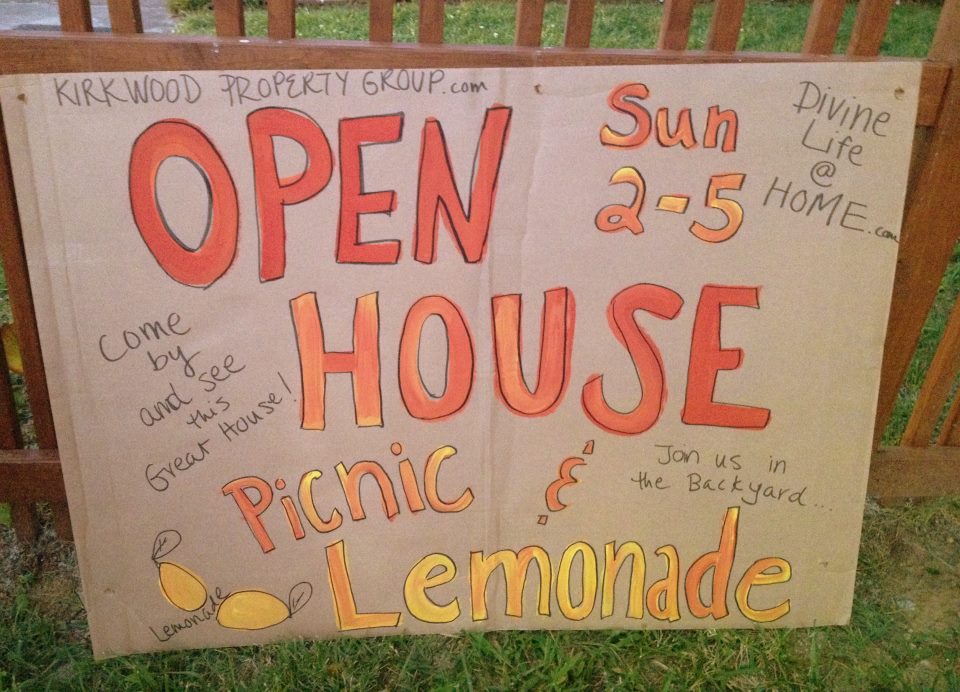 KIRKWOOD PROPERTY GROUP.com
OPEN
HOUSE
Sun
2-5
Divine
Life
@
HOME.com
Come
by
and see
this
Great House!
Picnic &
Lemonade
Join us in
the Backyard...
Lemonade